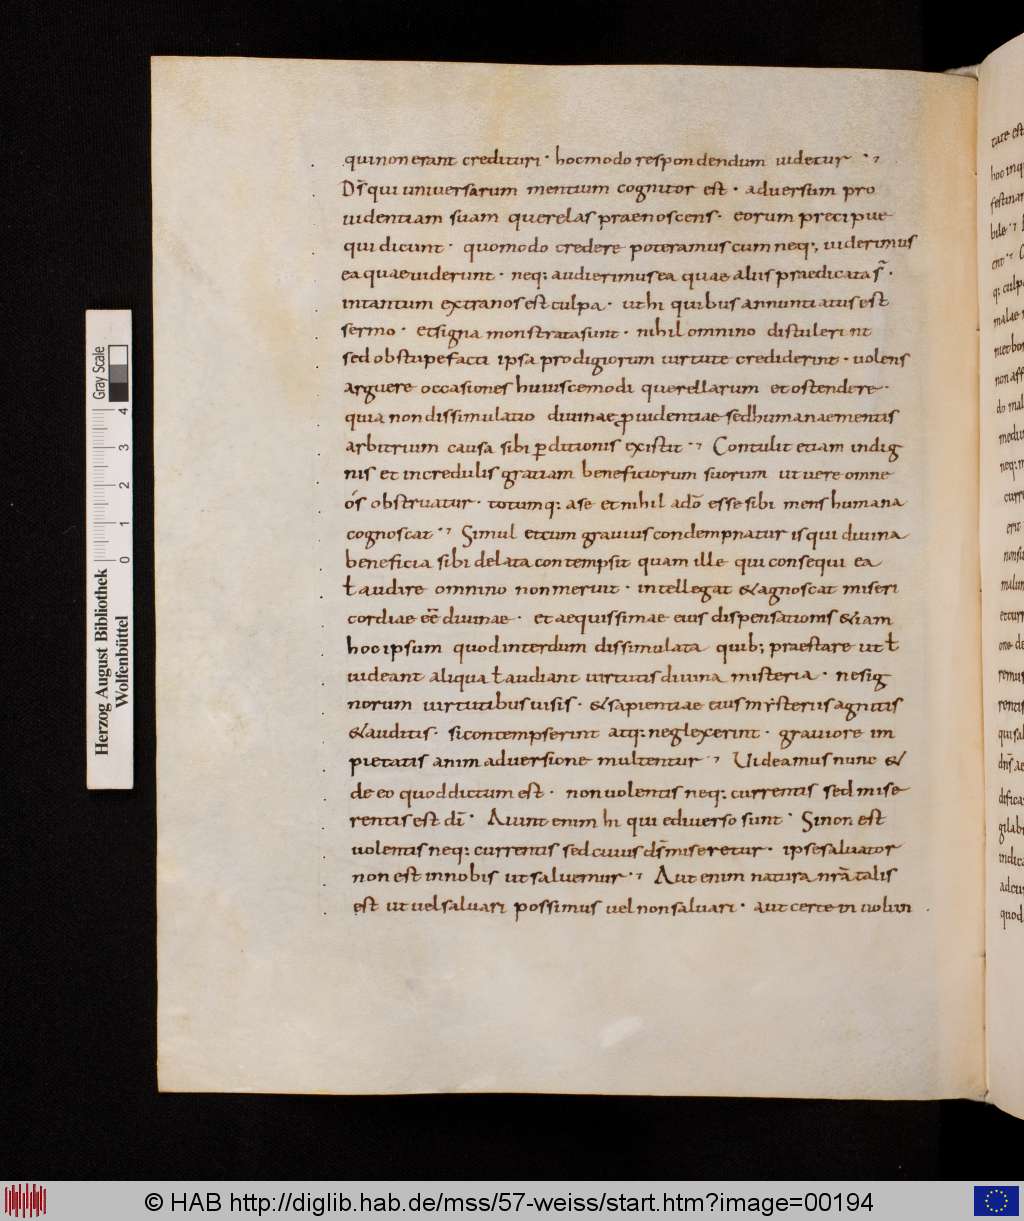 qui non erant credituri · hoc modo respondendum uidetur ·⁊
Ds̄ qui uniuersarum mentium cognitor est · aduersum pro
uidentiam suam querelas praenoscens · eorum precipue
qui dicunt · quomodo credere poteramus cum neq; uiderimus
ea quae uiderunt · neq; audierimus ea quae aliis praedicata s̄ ·
intantum extra nos est culpa · ut hi quibus annuntiatus est
sermo · et signa monstrata sunt · nihil omnino distulerint
sed obstupefacti ipsa prodigiorum uirtute crediderint · uolens
arguere occasiones huiuscemodi querellarum et ostendere ·
quia non dissimulatio diuinae ꝓuidentiae sed humanae mentis
arbitrium causa sibi ꝑditionis existit ·⁊ Contulit etiam indig
nis et incredulis gratiam beneficiorum suorum ut uere omne
ós obstruatur · totumq; a se et nihil ad dō esse sibi mens humana
cognoscat ·⁊ Simul et cum grauius condempnatur is qui diuina
beneficia sibi delata contempsit quam ille qui consequi ea
ƚ audire omnino non meruit · intellegat & agnoscat miseri
cordiae eē diuinae · et aequissimae eius dispensationis & iam
hoc ipsum quod interdum dissimulat a quib; praestare ut ƚ
uideant aliqua ƚ audiant uirtutis diuina misteria · ne sig
norum uirtutibus uisis · & sapientiae eius mẏsteriis agnitis
& auditis · si contempserint atq; neglexerint · grauiore im
pietatis animaduersione multentur ⁊ Uideamus nunc &
de eo quod dictum est · non uolentis neq; currentis sed mise
rentis est dī · Aiunt enim hi qui ediuerso sunt · Si non est
uolentis neq; currentis sed cuius ds̄ miseretur · ipse saluator
non est in nobis ut saluemur ·⁊ Aut enim natura nrā talis
est ut uel saluari possimus uel non saluari · aut certe in uolun
Herzog August Bibliothek
Wolfenbüttel
0 1 2 3 4
Gray Scale
© HAB http://diglib.hab.de/mss/57-weiss/start.htm?image=00194